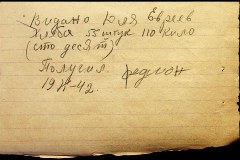 Видано Для Евреев
Хлеба 55 штук 110 кило
(сто десят)
Получил
19 42